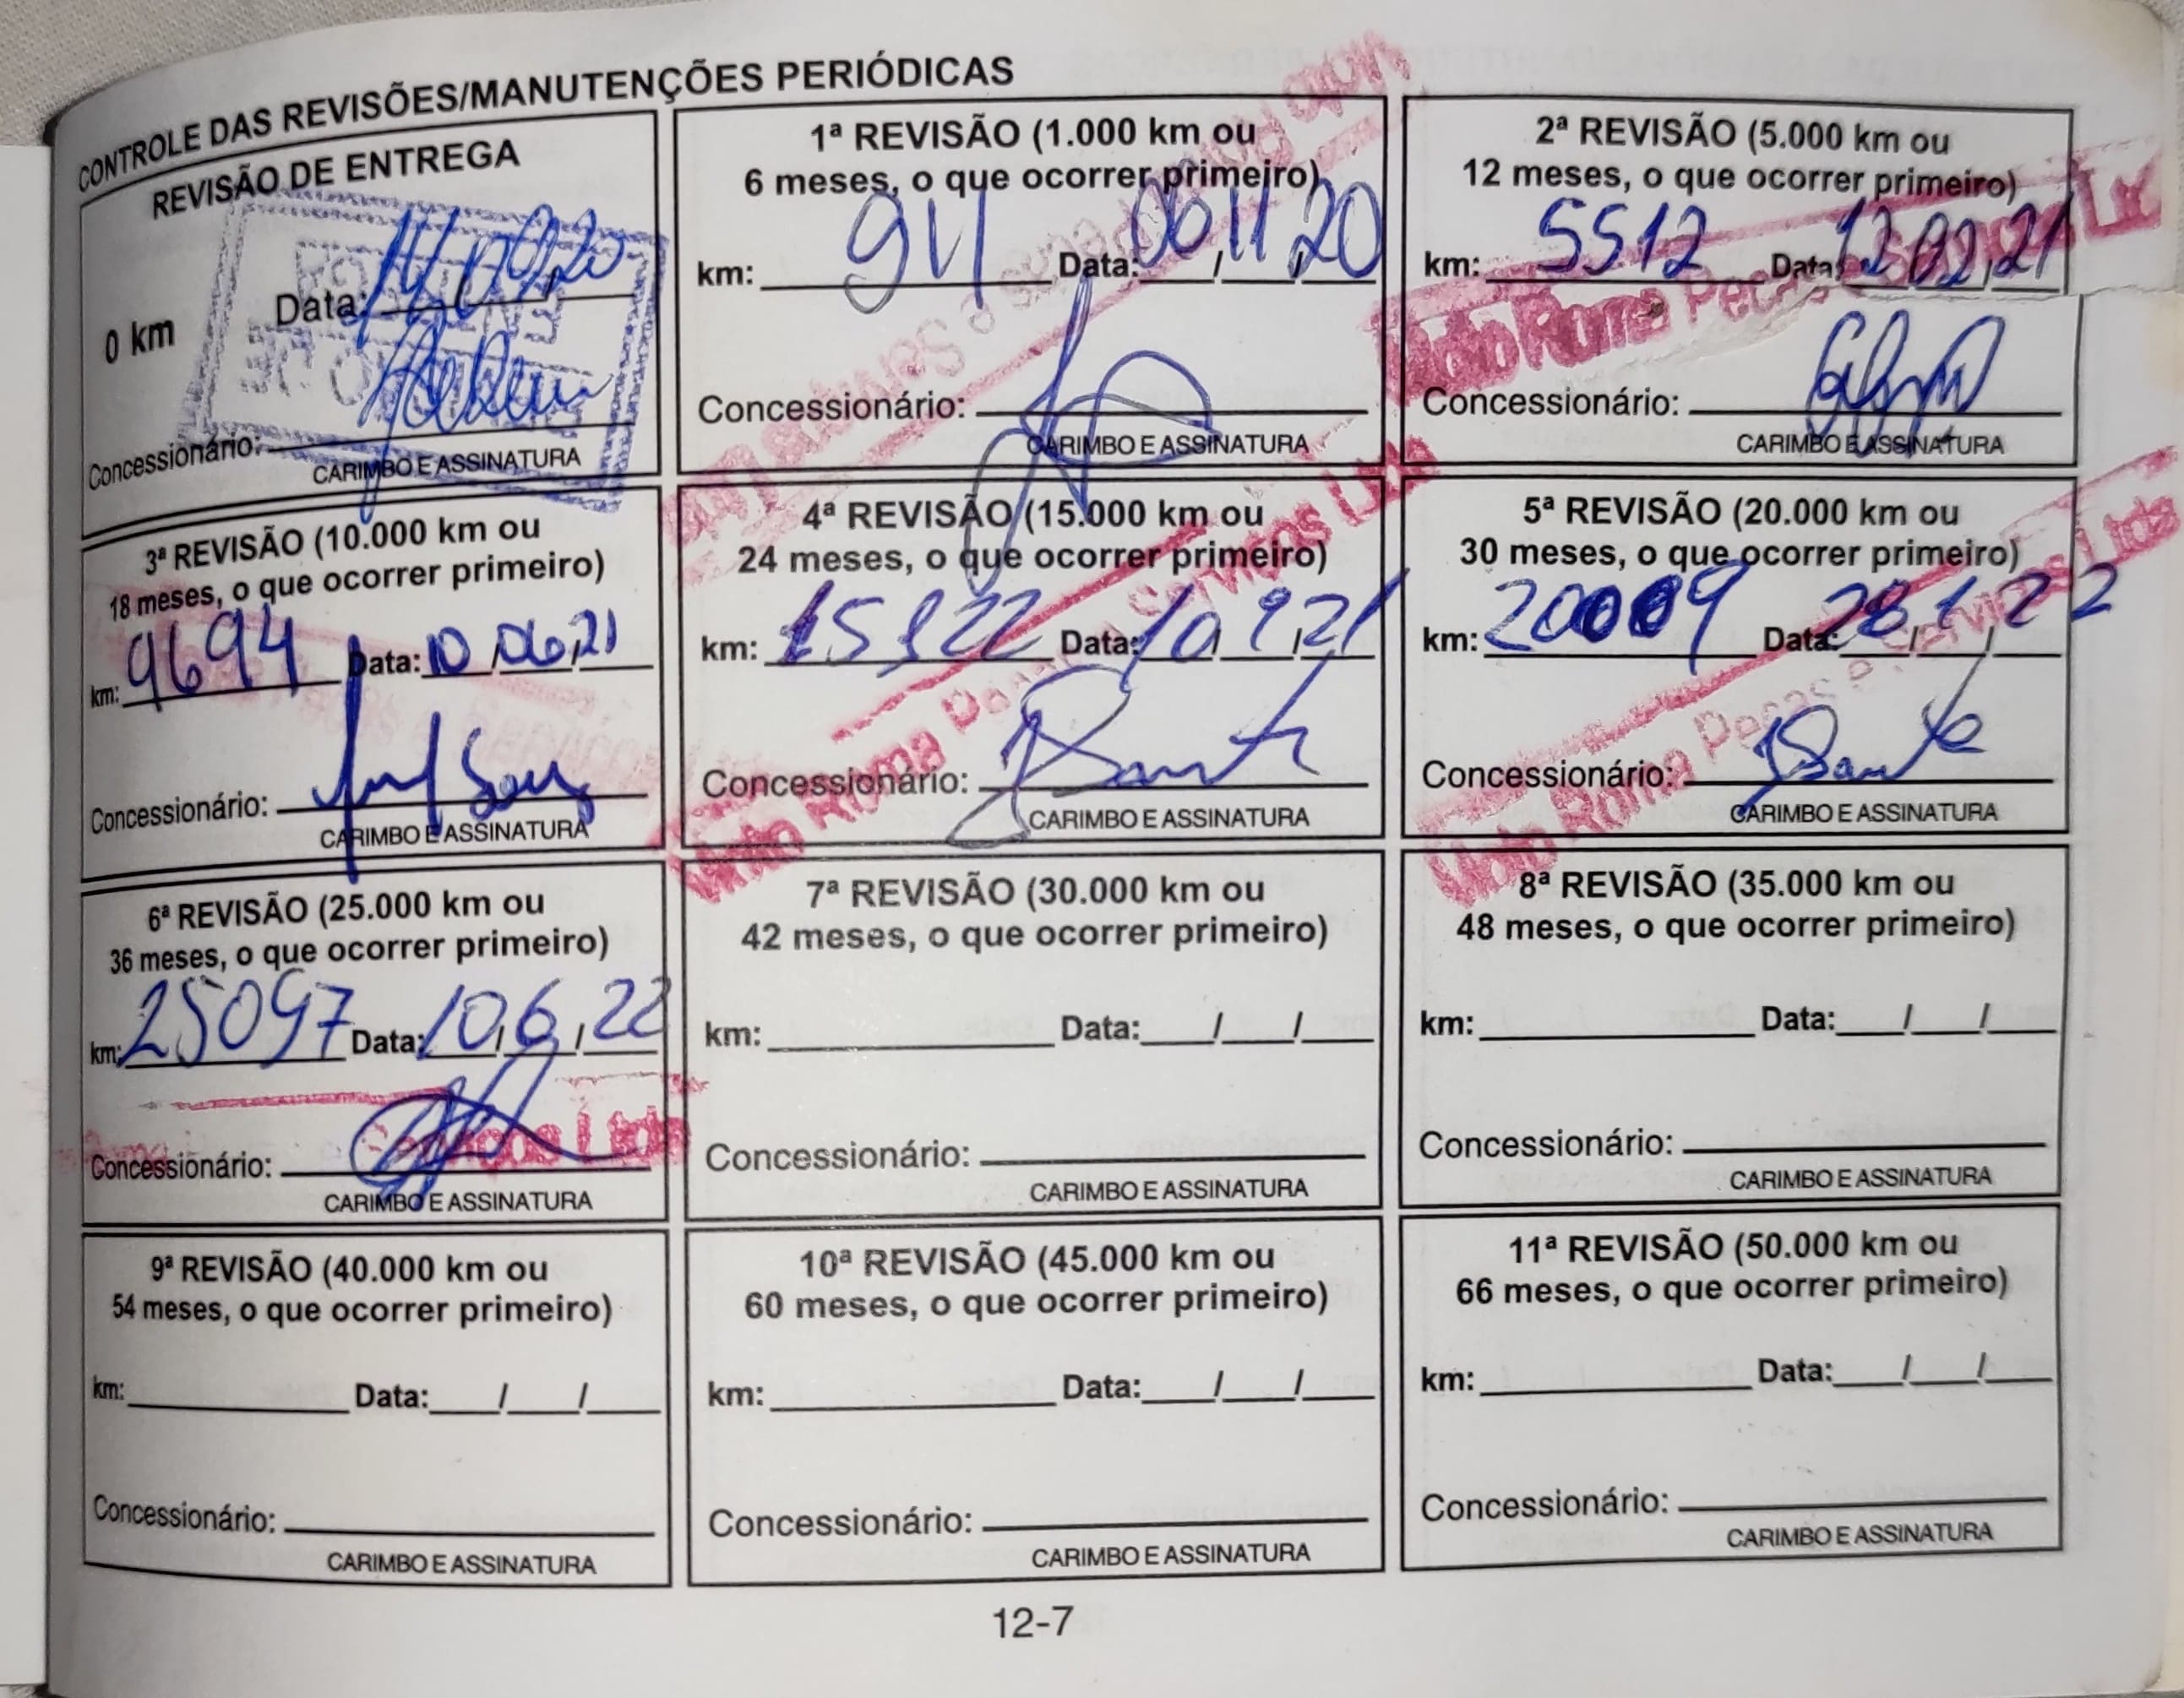 CONTROLE DAS REVISÕES/MANUTENÇÕES PERIÓDICAS
REVISÃO DE ENTREGA
0 km
Data: 14/09/20
Concessionário:
CARIMBO E ASSINATURA
1ª REVISÃO (1.000 km ou
6 meses, o que ocorrer primeiro)
km: 911 Data: 06/11/20
Concessionário:
CARIMBO E ASSINATURA
2ª REVISÃO (5.000 km ou
12 meses, o que ocorrer primeiro)
km: 5512 Data: 12/02/21
Moto Roma Peças
Concessionário:
CARIMBO E ASSINATURA
3ª REVISÃO (10.000 km ou
18 meses, o que ocorrer primeiro)
km: 9694 Data: 10/06/21
Concessionário:
CARIMBO E ASSINATURA
4ª REVISÃO (15.000 km ou
24 meses, o que ocorrer primeiro)
km: 15122 Data: 10/9/21
Moto Roma Peças e Serviços Ltda
Concessionário:
CARIMBO E ASSINATURA
5ª REVISÃO (20.000 km ou
30 meses, o que ocorrer primeiro)
km: 20009 Data: 28/1/22
Moto Roma Peças e Serviços Ltda
Concessionário:
CARIMBO E ASSINATURA
6ª REVISÃO (25.000 km ou
36 meses, o que ocorrer primeiro)
km: 25097 Data: 10/6/22
Roma Serviços Ltda
Concessionário:
CARIMBO E ASSINATURA
7ª REVISÃO (30.000 km ou
42 meses, o que ocorrer primeiro)
km: Data: / /
Concessionário:
CARIMBO E ASSINATURA
8ª REVISÃO (35.000 km ou
48 meses, o que ocorrer primeiro)
km: Data: / /
Concessionário:
CARIMBO E ASSINATURA
9ª REVISÃO (40.000 km ou
54 meses, o que ocorrer primeiro)
km: Data: / /
Concessionário:
CARIMBO E ASSINATURA
10ª REVISÃO (45.000 km ou
60 meses, o que ocorrer primeiro)
km: Data: / /
Concessionário:
CARIMBO E ASSINATURA
11ª REVISÃO (50.000 km ou
66 meses, o que ocorrer primeiro)
km: Data: / /
Concessionário:
CARIMBO E ASSINATURA
12-7